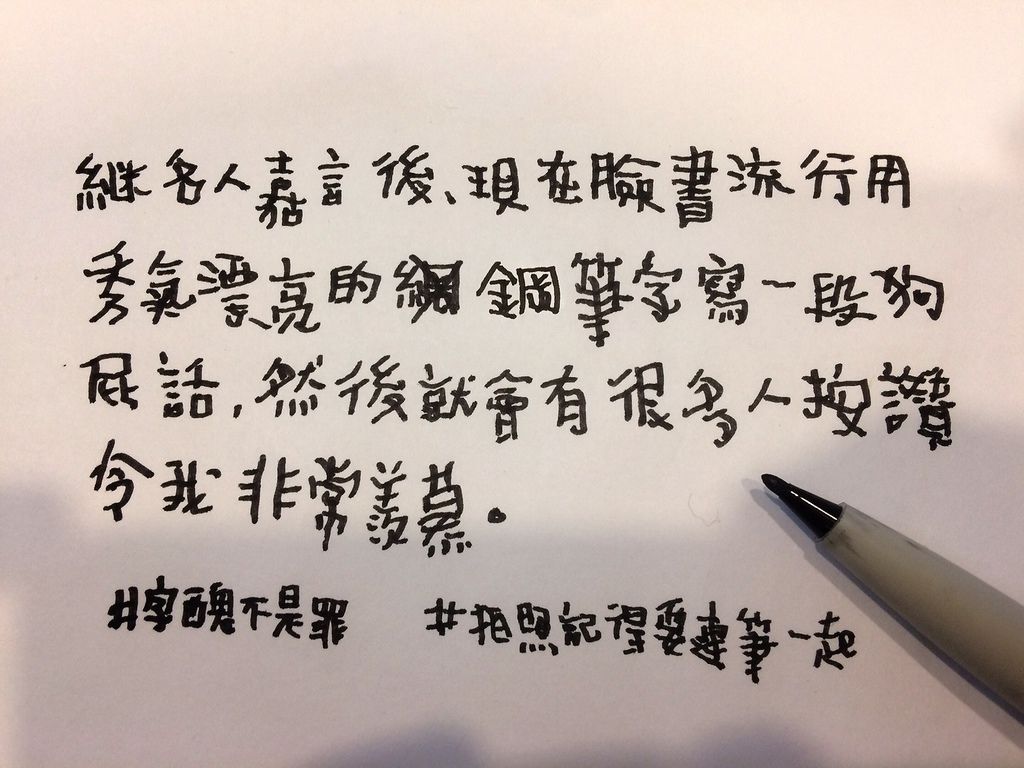 繼名人嘉言後、現在臉書流行用
秀氣漂亮的鋼筆字寫一段狗
屁話,然後就會有很多人按讚
令我非常羨慕。
#字醜不是罪 #拍照記得要連筆一起